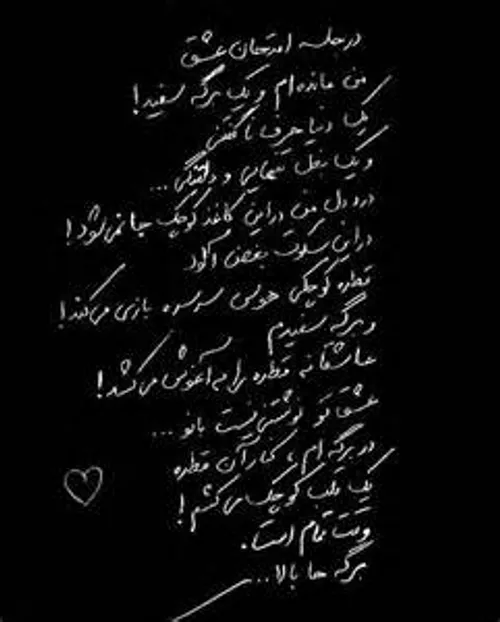 در جلسه امتحان عشق
من مانده‌ام و یک برگه سفید!
یک دنیا حرف ناگفتنی
و یک بغل تنهایی و دلتنگی...
درد دل من در این کاغذ کوچک جا نمی‌شود!
در این سکوت بغض آلود
قطره کوچکی هوس سرسره بازی می‌کند!
و برگه سفیدم
عاشقانه قطره را به آغوش می‌کشد!
عشق تو نوشتنی نیست بانو...
در برگه‌ام، کنار آن قطره
یک قلب کوچک می‌کشم!
وقت تمام است.
برگه ها بالا...